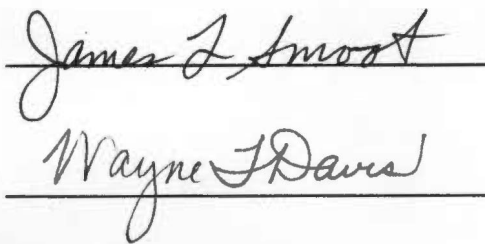 James L Smoot
Wayne F Davis